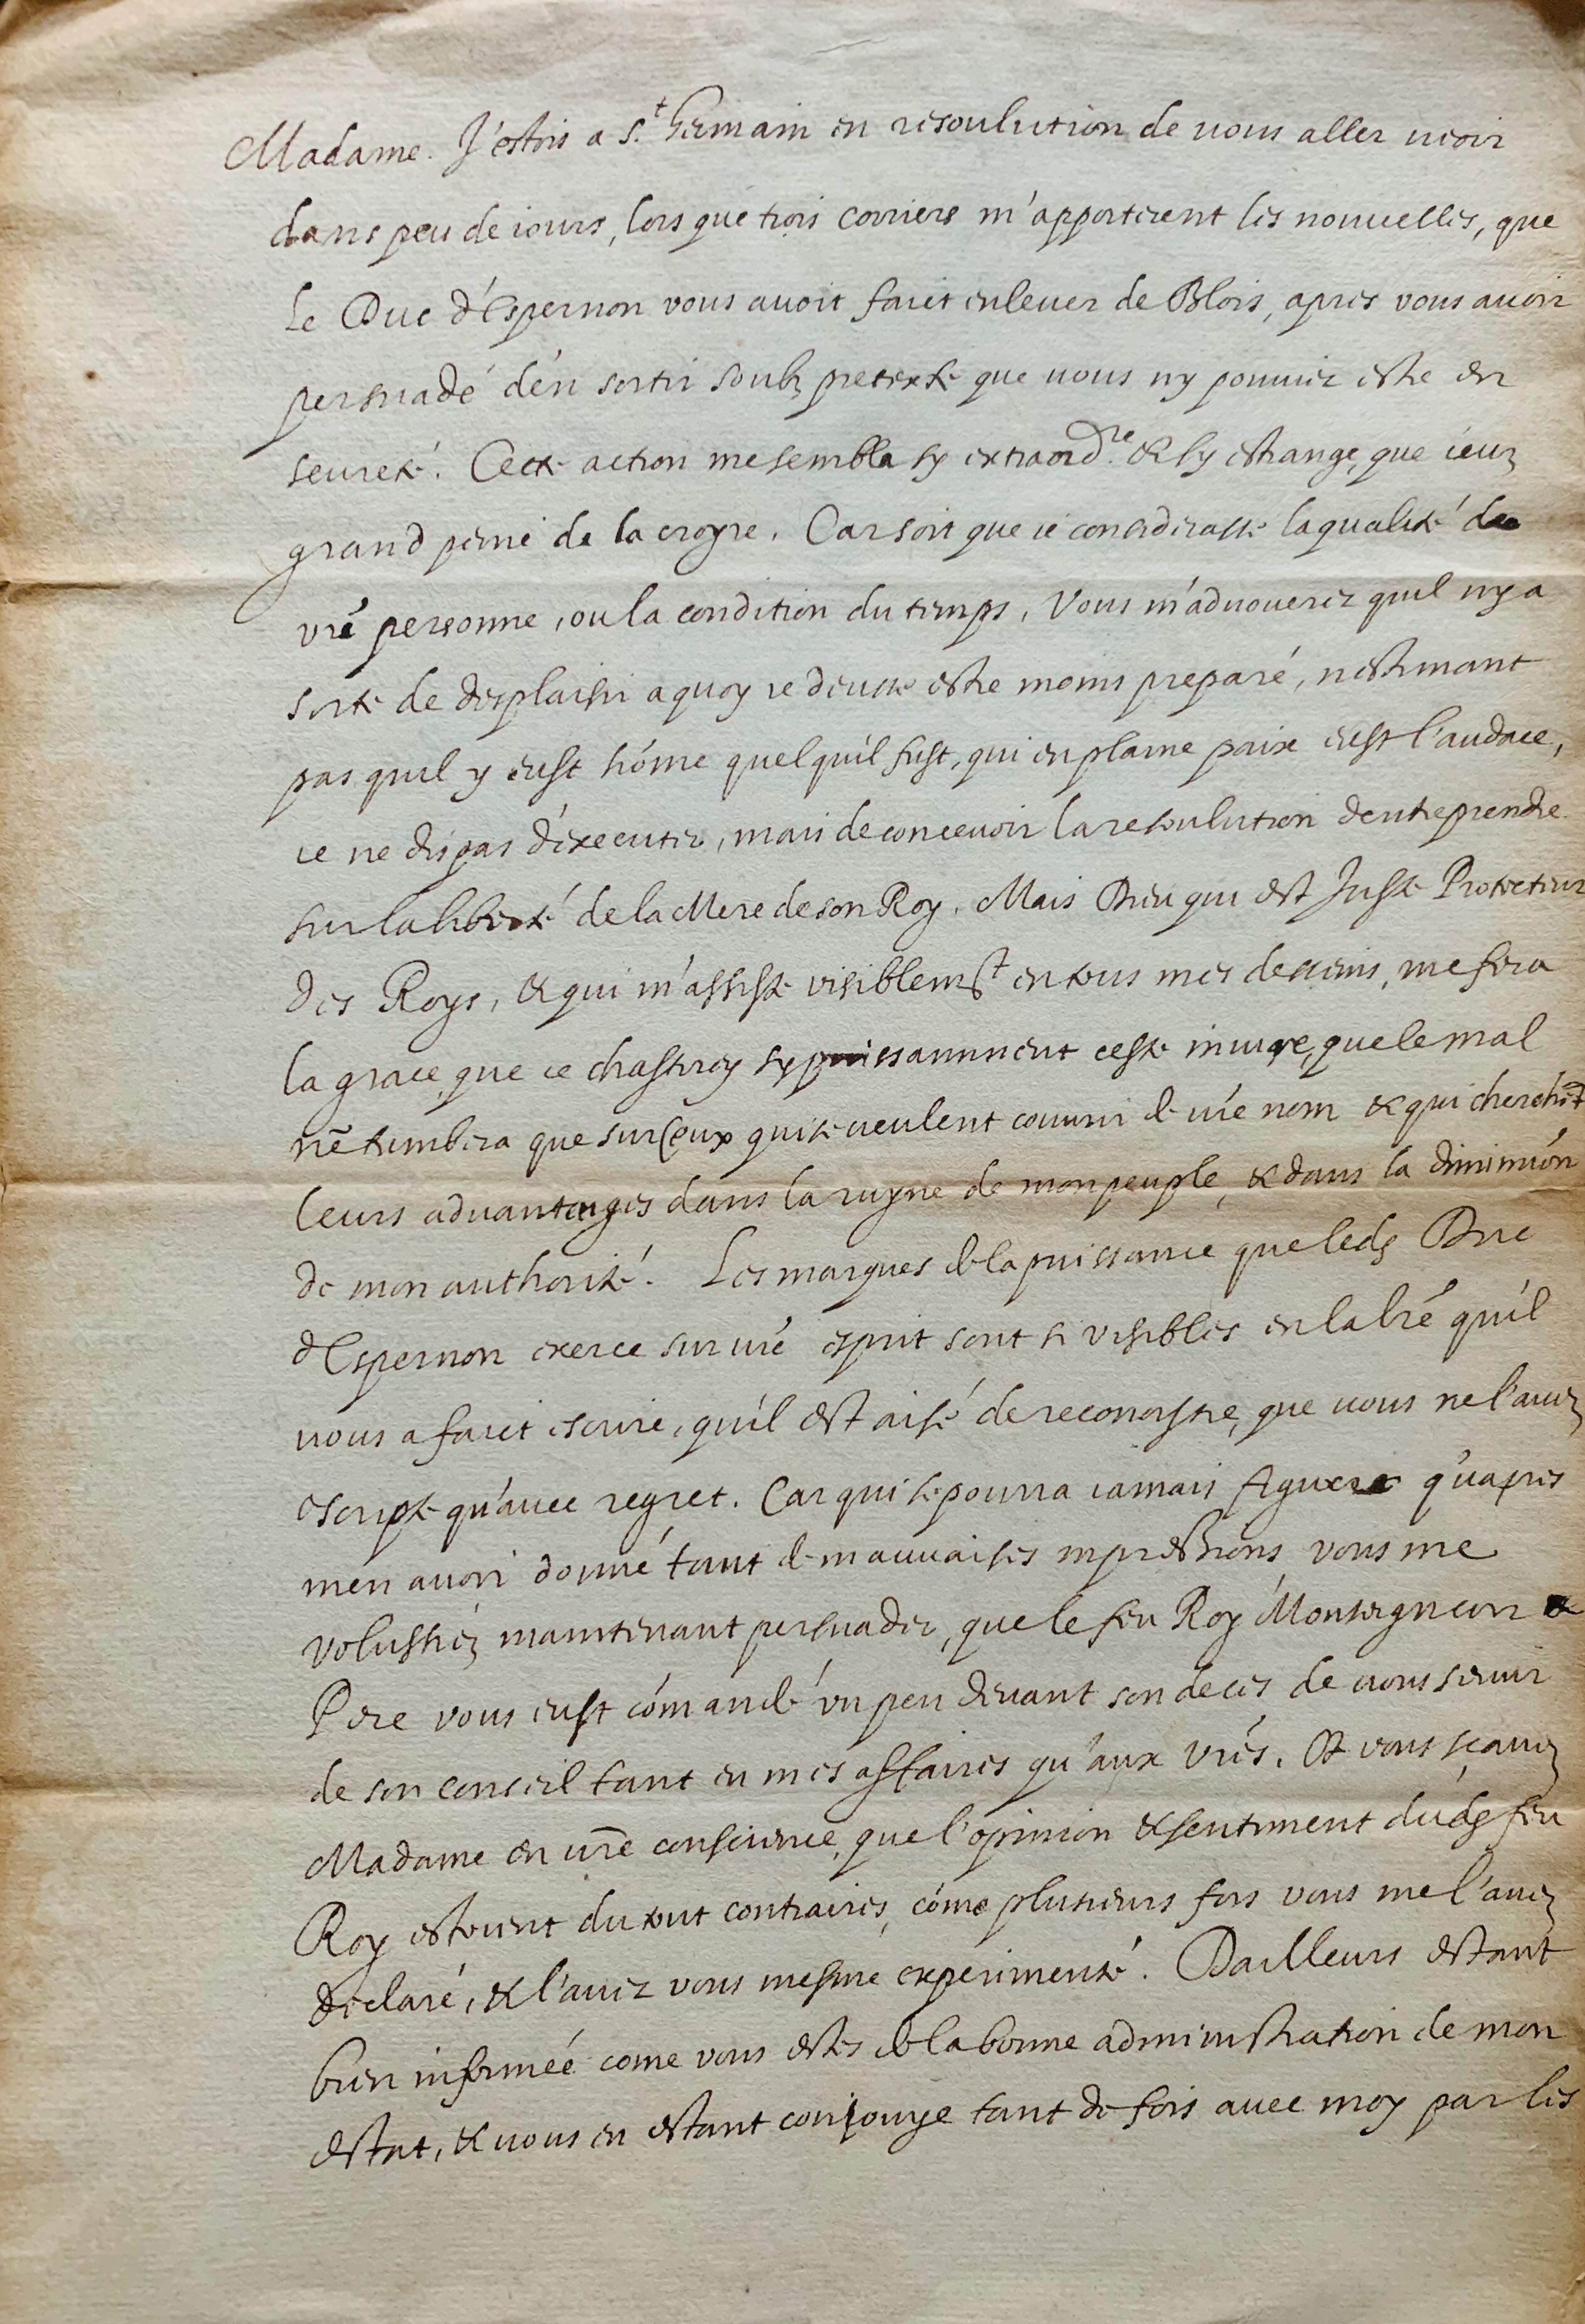 Madame. J'estois a S.t Germain en resoulution de vous aller veoir
dans peu de iours, lors que trois corriers m'apporterent les nouuelles, que
le Duc d'Espernon vous auoit faict enleuer de Blois, apres vous auoir
persuadé d'en sortir soubz pretexte que vous n'y pouuiez estre en
seureté. Ceste action me sembla sy extraord.re & sy estrange, que i'euz
grand peine de la croyre. Car soit que ie considerasse la qualité de
vr̃e personne, ou la condition du temps, Vous m'aduouerez quil ny a
sorte de desplaisir a quoy ie deusse estre moins preparé, n'estimant
pas quil y eust hõme quel quil fust, qui en plaine paix eust l'audace,
ie ne dis pas d'executer, mais de conceuoir la resoulution d'entreprendre
sur la liberté de la Mere de son Roy. Mais Dieu qui est Juste Protecteur
des Roys, & qui m'assiste visiblemt en tous mes desseins, me fera
la grace, que ie chastiray sy puissamment ceste iniure, que le mal
ne tumbera que sur ceux qui se veulent couurir de vr̃e nom & qui cherchẽt
leurs aduantages dans la ruyne de mon peuple, & dans la diminuõn
de mon authorité. Les marques de la puissance que leds Duc
d'Espernon exerce sur vr̃e esprit sont si visibles en la lr̃e qu'il
vous a faict escrire, qu'il est aisé de reconoistre, que vous ne l'auez
escripte qu'auec regret. Car qui se pourra iamais figurer qu'apres
m'en auoir donné tant de mauuaises impressions vous me
volussiez maintenant persuader, que le feu Roy Monseigneur &
Pere vous eust cõmandé vn peu deuant son deces de vous seruir
de son conseil tant en mes affaires qu'aux vr̃es. Et vous scauez
Madame en vr̃e conscience, que l'opinion & sentiment dud.s feu
Roy estoient du tout contraires, cõme plusieurs fois vous me l'auez
declaré, & l'auez vous mesme experimenté. D'ailleurs estant
bien informée come vous estes de la bonne administration de mon
estat, & vous en estant coniouye tant de fois auec moy par les